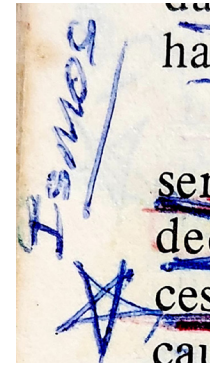 Ismos
ha
ser
dec
ces
cau